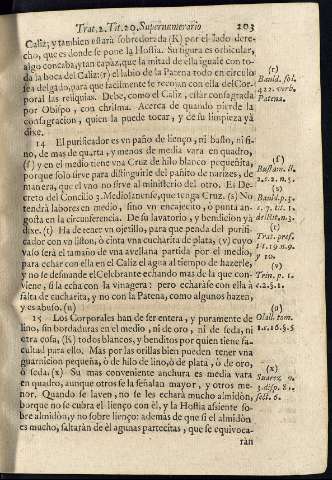 Trat.2. Tit.20. Supernumerario 203
Caliz; y tambien estarà sobredorada (K) por el lado dere-
cho, que es donde se pone la Hostia. Su figura es orbicular,
algo concaba, y tan capaz, que la mitad de ella iguale con to-
da la boca del Caliz (r) el labio de la Patena todo en circulo
sea delgado, para que facilmente se recojan con ella del Cor-
poral las reliquias. Debe, como el Caliz, estàr consagrada
por Obispo, con chrisma. Acerca de quando pierde la
consagracion, quien la puede tocar, y de su limpieza yà
dixe.
14 El purificador es vn paño de lienço, ni basto, ni fi-
no, de mas de quarta, y menos de media vara en quadro,
(s) y en el medio tiene vna Cruz de hilo blanco pequeñita,
porque solo sirve para distinguirle del pañito de narizes, de
manera, que el vno no sirve al ministerio del otro. El De-
creto del Concilio 3. Mediolanense, que tenga Cruz. (s) No
tendrà labores en medio, sino vn encagecito, ò punta an-
gosta en la circunferencia. De su lavatorio, y bendicion yà
dixe. (t) Ha de tener vn ojetillo, para que penda del purifi-
cador con vn liston, ò cinta vna cucharita de plata, (v) cuyo
vaso serà el tamaño de vna avellana partida por el medio,
para echar con ella en el Caliz el agua al tiempo de hazerle,
y no se desmande el Celebrante echando mas de la que con-
viene, si la echa con la vinagera: pero echaràse con ella à
falta de cucharita, y no con la Patena, como algunos hazen,
y es abuso. (u)
15 Los Corporales han de ser entera, y puramente de
lino, sin bordaduras en el medio, ni de oro, ni de seda, ni
otra cosa, (K) todos blancos, y benditos por quien tiene fa-
cultad para ello. Mas por las orillas bien pueden tener vna
guarnicion pequeña, ò de hilo de lino, ò de plata, ò de oro,
ò seda. (x) Su mas conveniente anchura es media vara
en quadro, aunque otros se la señalan mayor, y otros me-
nor. Quando se laven, no se les echarà mucho almidòn,
porque no se cubra el lienço con èl, y la Hostia assiente so-
bre almidòn, y no sobre lienço: ademàs de que si el almidòn
es mucho, saltaràn de èl algunas partecitas, que se equivoca-
ràn
(r)
Bauld. fol.
422. verb.
Patena.
(s)
(s)
Bauld. p. 3.
(t)
Trat. pres.
y 10.
(v)
Tom. p. 1.
c. 2. §. 1.
(u)
Olall. tom.
1. n. 16. §. 5
(x)
Suarez
3. disp. 81.
sect. 6.